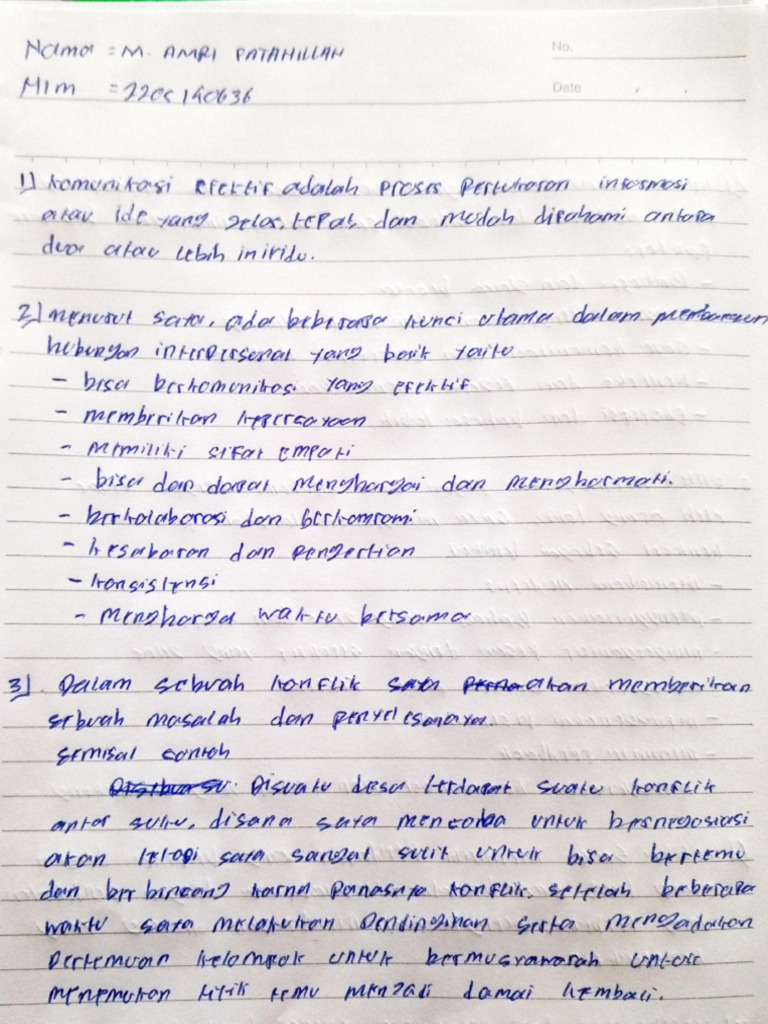 Nama = M. AMRI FATAHILLAH
No.
NIM = 2205140636
Date
1) Komunikasi efektif adalah proses Pertukaran informasi
atau ide yang jelas, tepat dan mudah dipahami antara
dua atau lebih iniridu.
2) menurut saya, ada beberapa kunci utama dalam membangun
hubungan interpersonal yang baik yaitu
- bisa berkomunikasi yang efektif
- memberikan kepercayaan
- memiliki sifat empati
- bisa dan dapat menghargai dan menghormati.
- berkolaborasi dan berkompromi
- kesabaran dan pengertian
- konsistensi
- menghargai waktu bersama
3) Dalam sebuah konflik akan memberikan
sebuah masalah dan penyelesainnya.
semisal contoh
Disuatu desa terdapat suatu konflik
antar suku, disana saya mencoba untuk bernegosiasi
akan tetapi saya sangat sulit untuk bisa bertemu
dan berbincang karna panasnya konflik, setelah beberapa
waktu saya melakukan pendinginan serta mengadakan
pertemuan kelompok untuk bermusyawarah untuk
menemukan titik temu menjadi damai kembali.